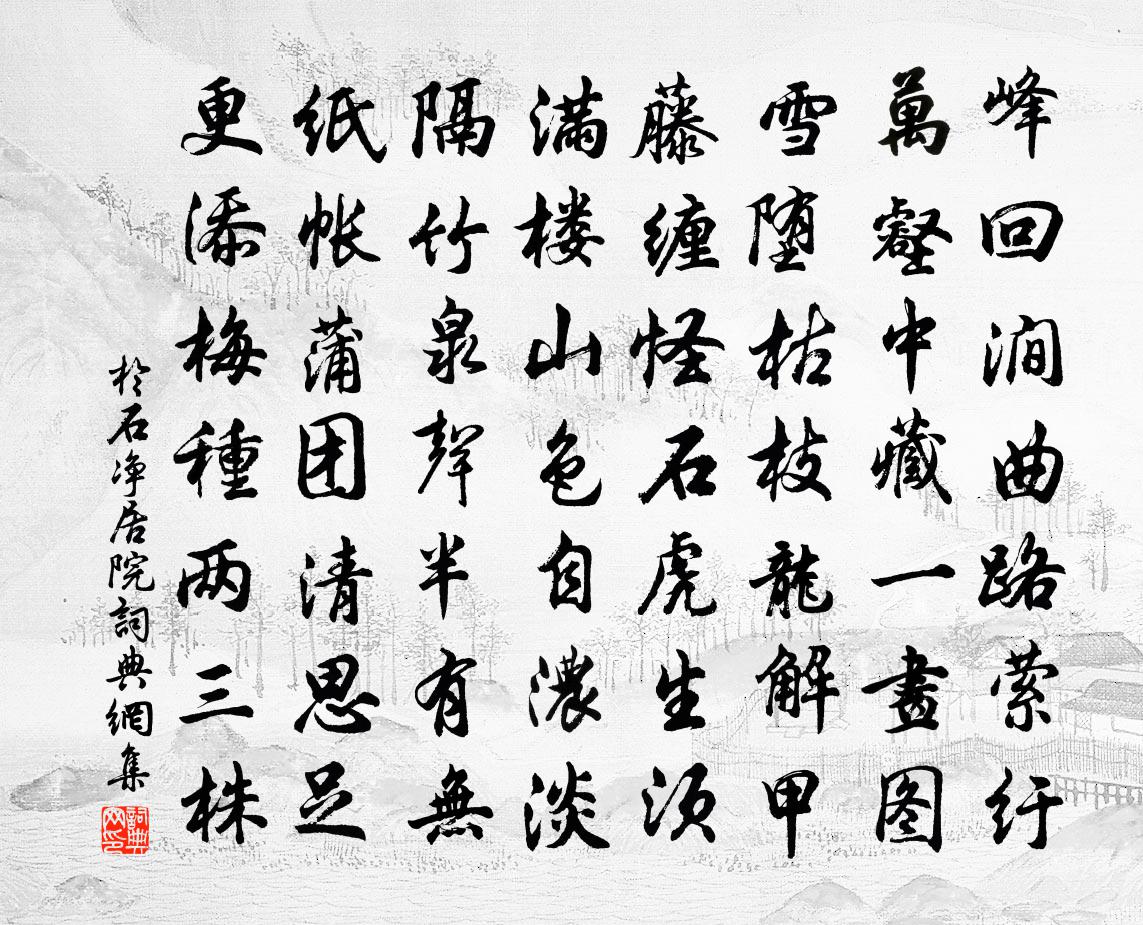 峰回涧曲路萦纡
萬壑中藏一畫图
雪堕枯枝龍解甲
藤缠怪石虎生须
满楼山色自濃淡
隔竹泉聲半有無
纸帐蒲团清思足
更添梅種两三株
於石净居院詞典網集
詞典网印